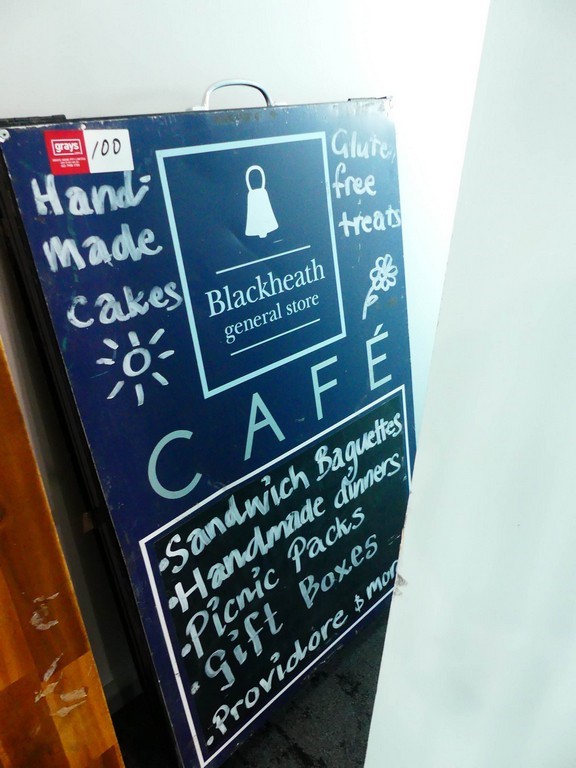 grays
100
Hand-
Made
Cakes
Glute
free
treats
Blackheath
general store
CAFÉ
•Sandwich Baguettes
•Handmade dinners
•Picnic Packs
•Gift Boxes
•Providore & mor